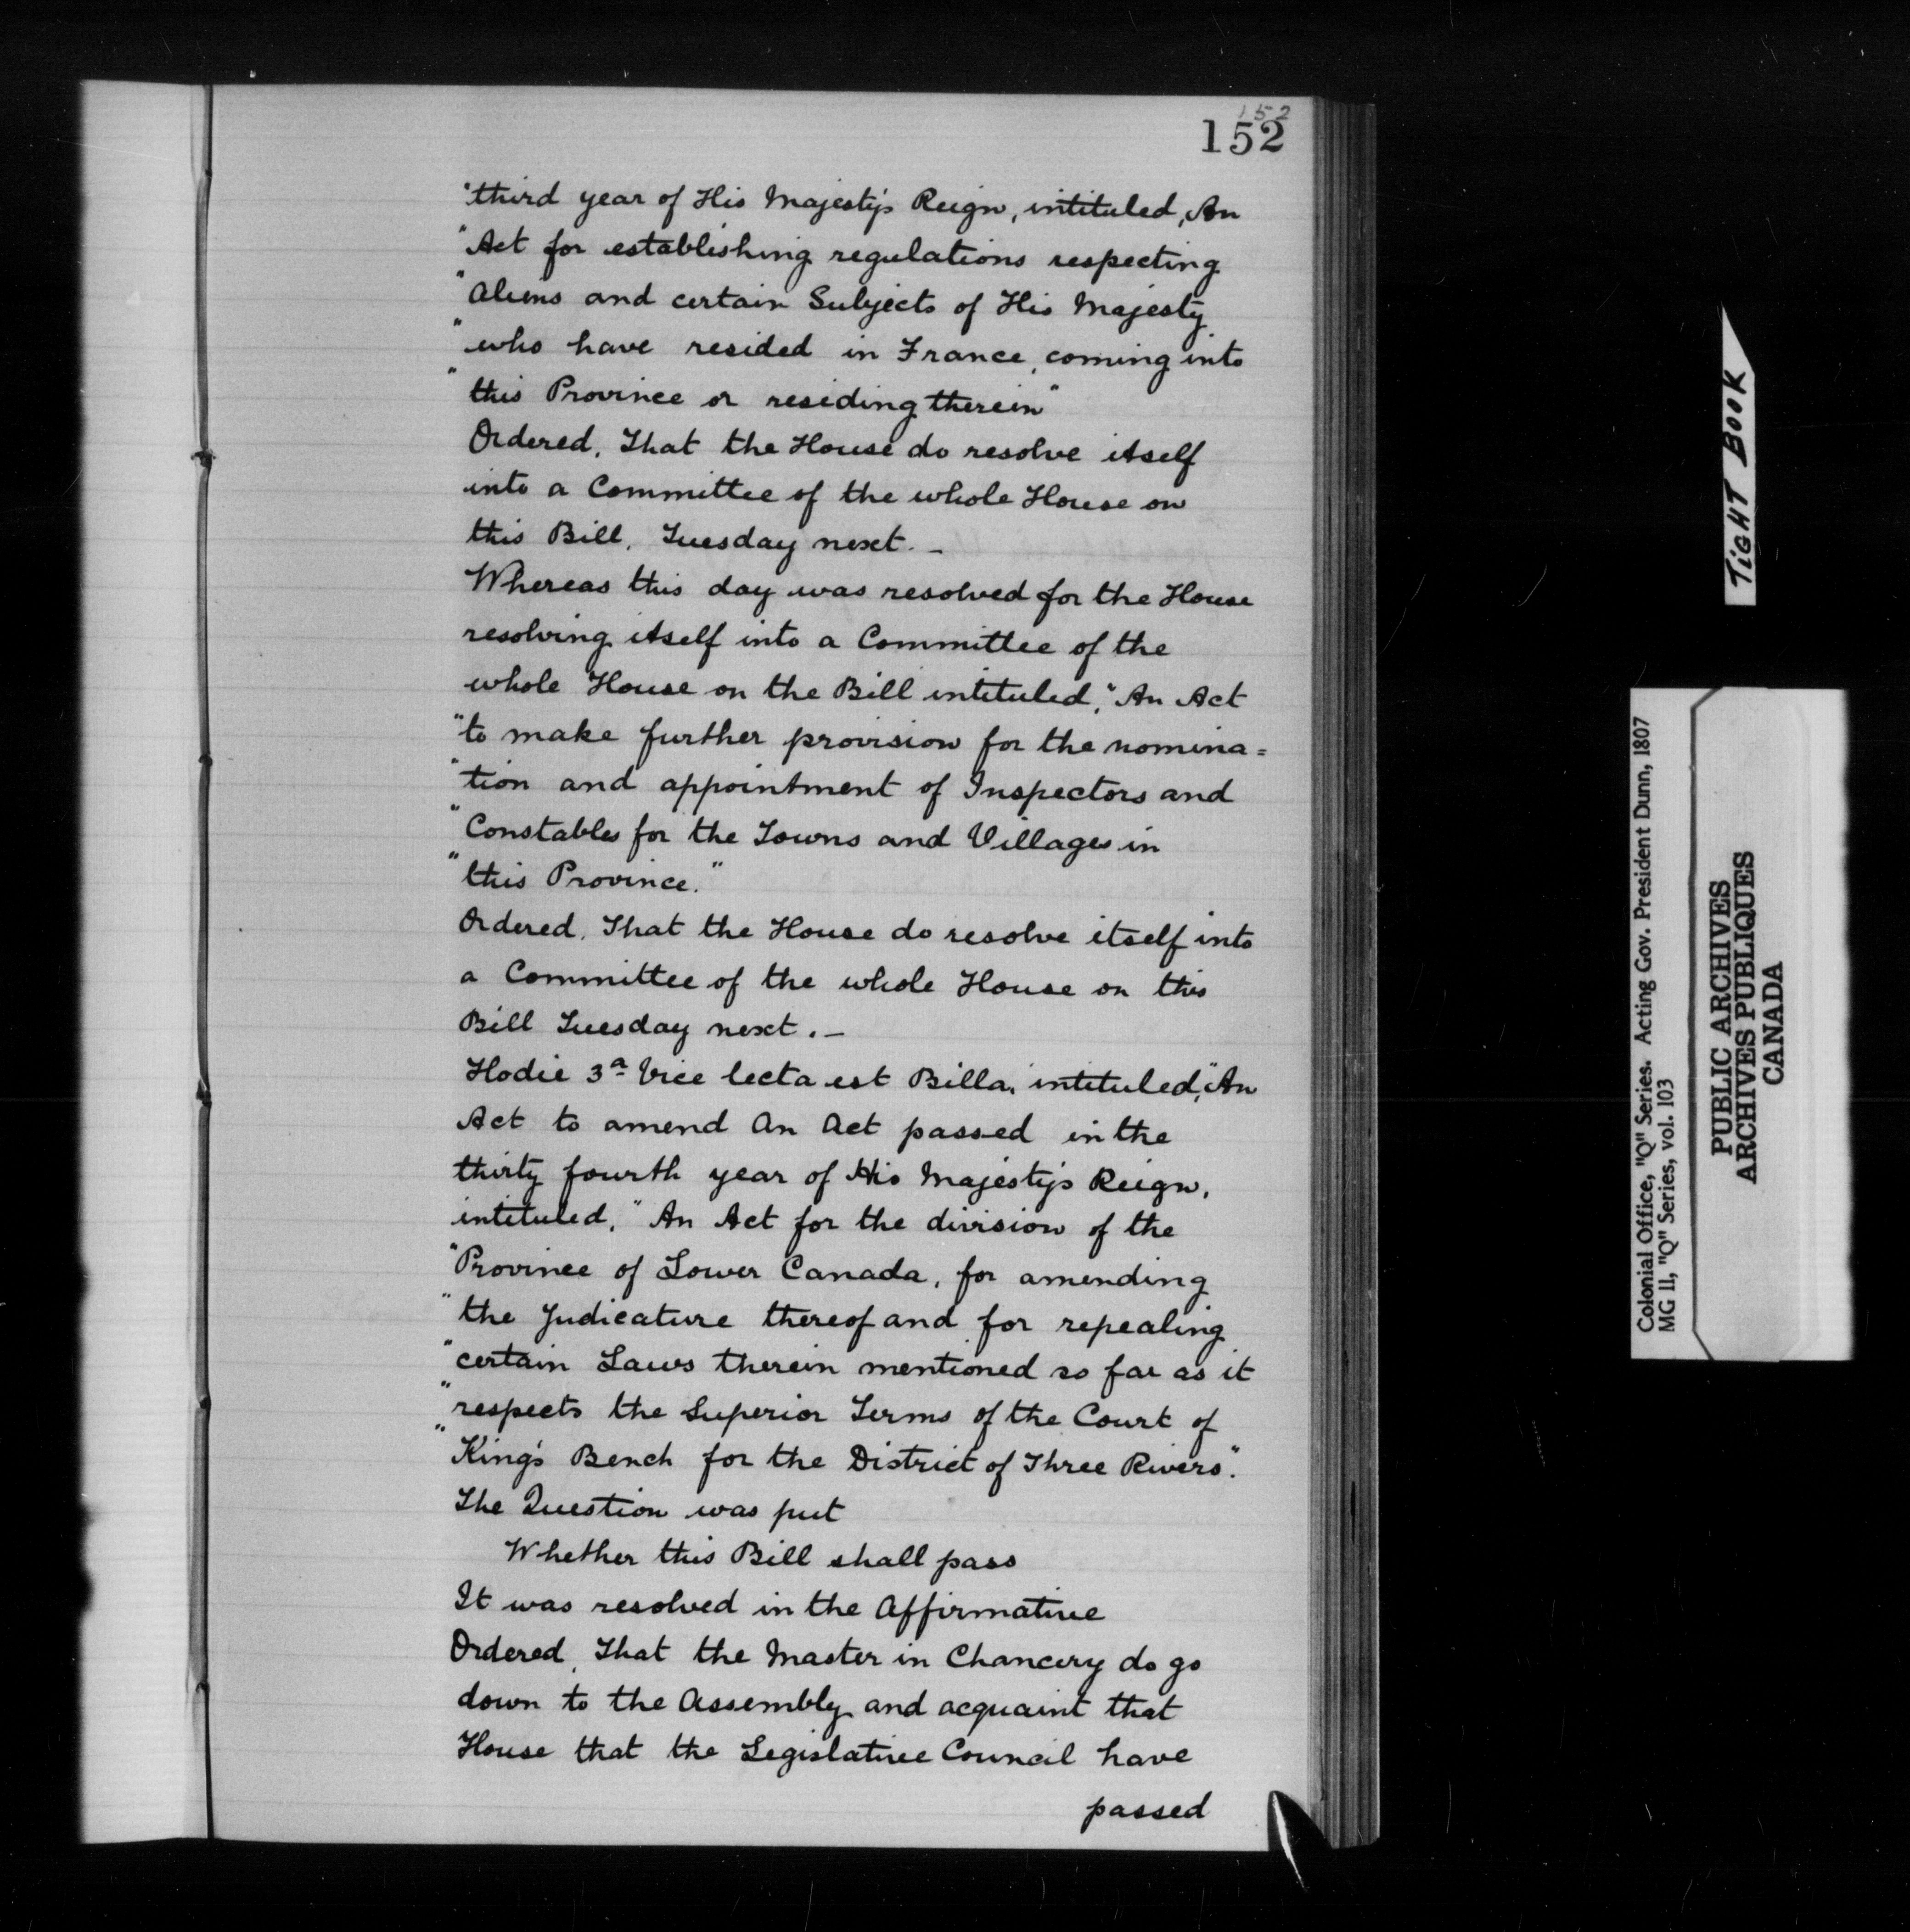 152
152
"third year of His Majesty's Reign, intituled, An
"Act for establishing regulations respecting
"Aliens and certain Subjects of His Majesty
"who have resided in France, coming into
"this Province or residing therein"
Ordered, That the House do resolve itself
into a Committee of the whole House on
this Bill, Tuesday next. –
Whereas this day was resolved for the House
resolving itself into a Committee of the
whole House on the Bill intituled, "An Act
"to make further provision for the nomina=
"tion and appointment of Inspectors and
"Constables for the Towns and Villages in
"this Province."
Ordered, That the House do resolve itself into
a Committee of the whole House on this
Bill Tuesday next. –
Hodie 3a Vice lecta est Billa, intituled, "An
Act to amend An Act passed in the
thirty fourth year of His Majesty's Reign,
intituled, "An Act for the division of the
"Province of Lower Canada, for amending
"the Judicature thereof and for repealing
"certain Laws therein mentioned so far as it
"respects the Superior Terms of the Court of
"King's Bench for the District of Three Rivers".
The Question was put
Whether this Bill shall pass
It was resolved in the Affirmative
Ordered, That the Master in Chancery do go
down to the Assembly and acquaint that
House that the Legislative Council have
passed
TIGHT BOOK
Colonial Office, "Q" Series. Acting Gov. President Dunn, 1807
MG 11, "Q" Series, vol. 103
PUBLIC ARCHIVES
ARCHIVES PUBLIQUES
CANADA